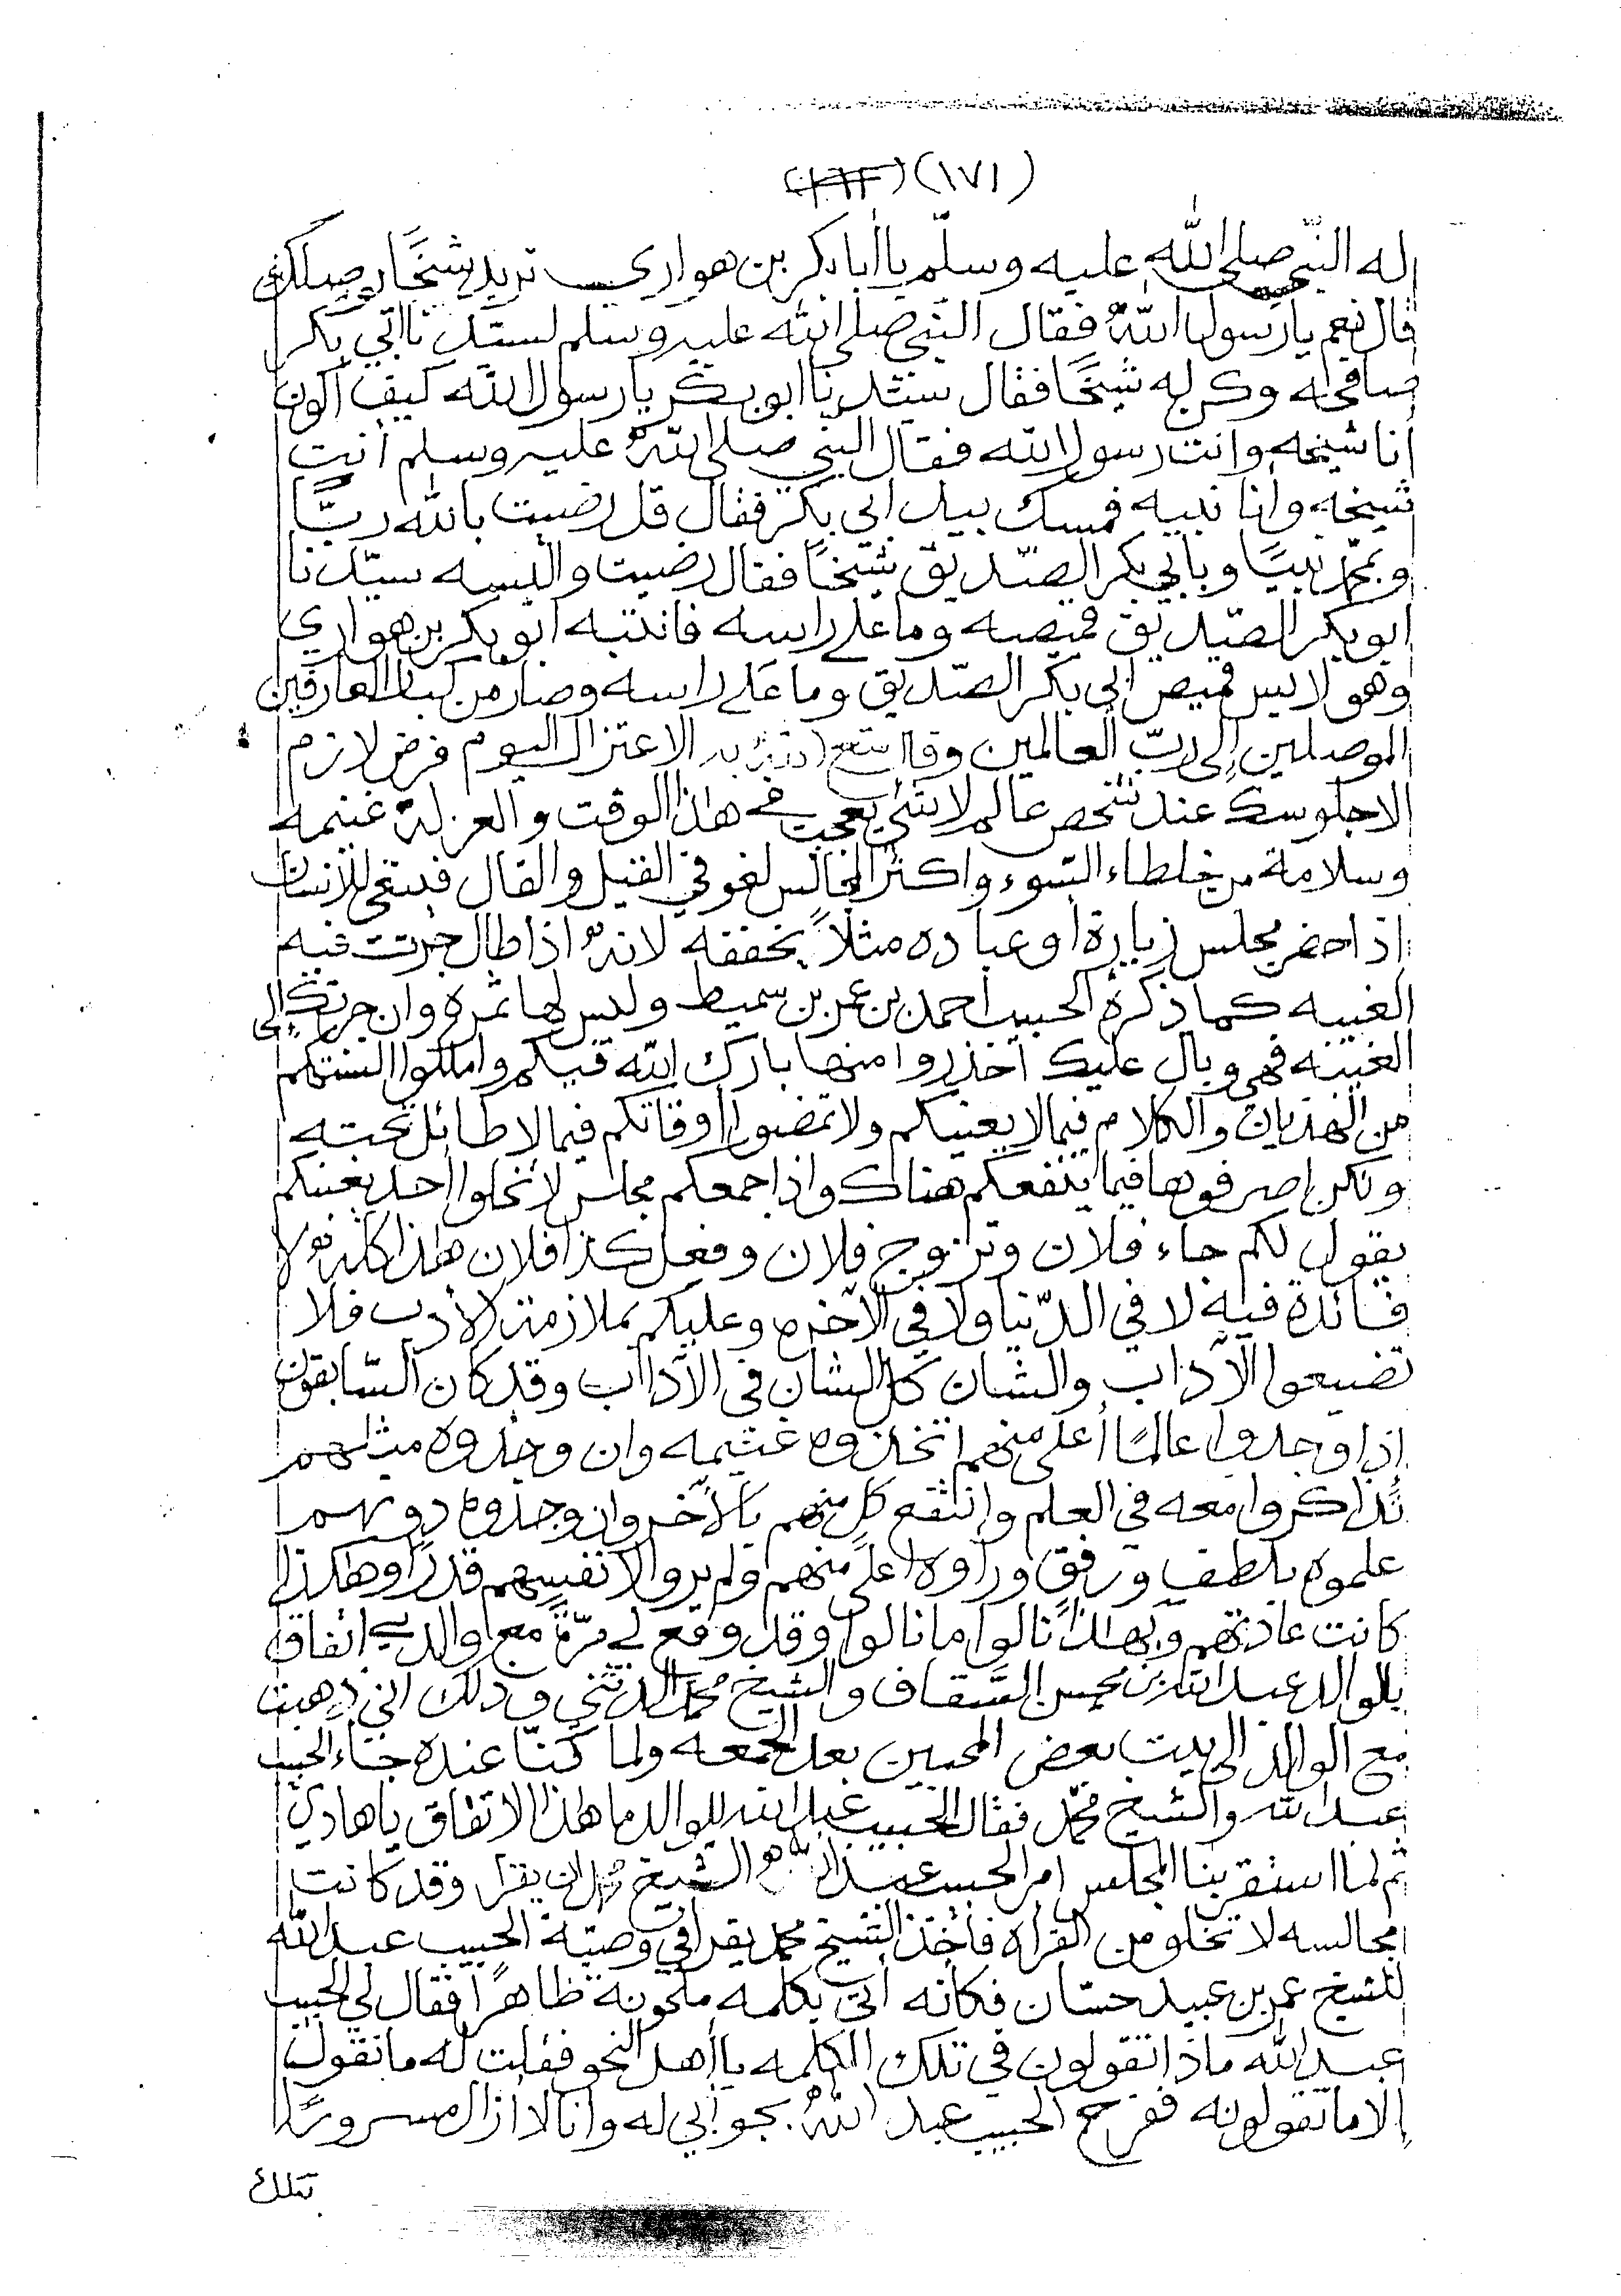 (١٧١) (١٦٣)
له النّبي صلى الله عليه وسلّم يا أبا بكر بن هواري تريد شيخًا يوصلك
قال نعم يا رسول اللهُ فقال النّبي صلى الله عليه وسلم لسيّدنا أبي بكر
صافحه وكن له شيخًا فقال سيّدنا ابو بكر يا رسول الله كيف أكون
أنا شيخه وانت رسول الله فقال النبي صلى اللهُ عليه وسلم أنت
شيخه وأنا نبيه فمسك بيد ابي بكر فقال قل رضيت بالله ربًّا
و بمحمّد نبيًا و بأبي بكر الصّديق شيخًا فقال رضيت والبسه سيّدنا
ابو بكر الصّديق قميصه وما على راسه فانتبه ابو بكر بن هواري
وهو لابس قميص أبي بكر الصّديق وما على راسه وصار من كبار العارفين
الموصلين إلى ربّ العالمين وقال الاعتزال اليوم فرض لازم
الا جلوسك عند شخص عالم لا شيئ يعجب في هذا الوقت والعزلة غنيمه
وسلامة من خلطاء السّوء واكثر المجالس لغو في القيل والقال فينبغي للأنسان
اذا حضر مجلس زيارة أو عياده مثلاً يخففه لانهُ اذا طال جرّت فيه
الغيبه كما ذكره الحبيب أحمد بن عمر بن سميط وليس لها ثمره وان جرتك إلى
الغيبه فهي وبال عليك أحذروا منها بارك الله فيكم واملكوا السنتكم
من الهذيان والكلام فيما لا يعنيكم ولا تمضوا أوقاتكم فيما لا طائل تحته
ولكن إصرفوها فيما ينفعكم هناك واذا جمعكم مجلس لا تخلوا احد يغبنكم
يقول لكم جاء فلان وتزوج فلان وفعل كذا فلان هذا كله لا
فائدة فيه لا في الدّنيا ولا في الآخره وعليكم بملازمة الأدب فلا
تضيعوا الآداب والشان كل الشان في الآداب وقد كان السّابقون
إذا وجدوا عالمًا أعلى منهم اتخذوه غنيمه وان وجدوه مثلهم
تذاكروا معه في العلم وانتفع كل منهم بالآخر وان وجدوه دونهم
علموه بلطف ورفق ورأوه أعلى منهم ولم يروا لأنفسهم قدرًا وهكذا
كانت عادتهم وبهذا نالوا ما نالوا وقد وقع لي مرّةً مع والدي اتفاق
بالوالد عبد الله بن محسن السّقاف والشيخ محمد الدثني وذلك اني ذهبت
مع الوالد الى بيت بعض المحبين بعد الجمعه ولما كنّا عنده جاء الحبيب
عبد الله والشيخ محمّد فقال الحبيب عبد الله للوالد ما هذا الاتفاق يا هادي
ثم لما استقر بنا المجلس امر الحبيب عبد الله الشيخ محمد ان يقرا وقد كانت
مجالسه لا تخلو من القرأه فأخذ الشيخ محمد يقرا في وصيّة الحبيب عبد الله
للشيخ عمر بن عبيد حسّان فكأنه أتى بكلمه ملحونة ظاهرًا فقال لي الحبيب
عبد الله ماذا تقولون في تلك الكلمه يا أهل النحو فقلت له ما نقول
إلا ما تقولونه ففرح الحبيب عبد اللهُ بجوابي له وأنا لا ازال مسرورًا
بتلك